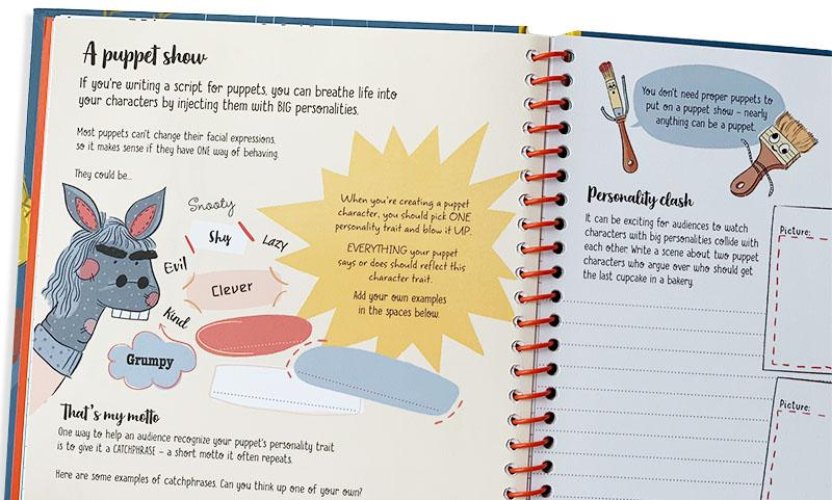 A puppet show
If you're writing a script for puppets, you can breathe life into
your characters by injecting them with BIG personalities.
Most puppets can't change their facial expressions,
so it makes sense if they have ONE way of behaving.
They could be...
Snooty
Shy
Lazy
Evil
Clever
Kind
Grumpy
When you're creating a puppet
character, you should pick ONE
personality trait and blow it UP.
EVERYTHING your puppet
says or does should reflect this
character trait.
Add your own examples
in the spaces below.
That's my motto
One way to help an audience recognize your puppet's personality trait
is to give it a CATCHPHRASE – a short motto it often repeats.
Here are some examples of catchphrases. Can you think up one of your own?
You don't need proper puppets to
put on a puppet show – nearly
anything can be a puppet.
Personality clash
It can be exciting for audiences to watch
characters with big personalities collide with
each other. Write a scene about two puppet
characters who argue over who should get
the last cupcake in a bakery.
Picture:
Picture: